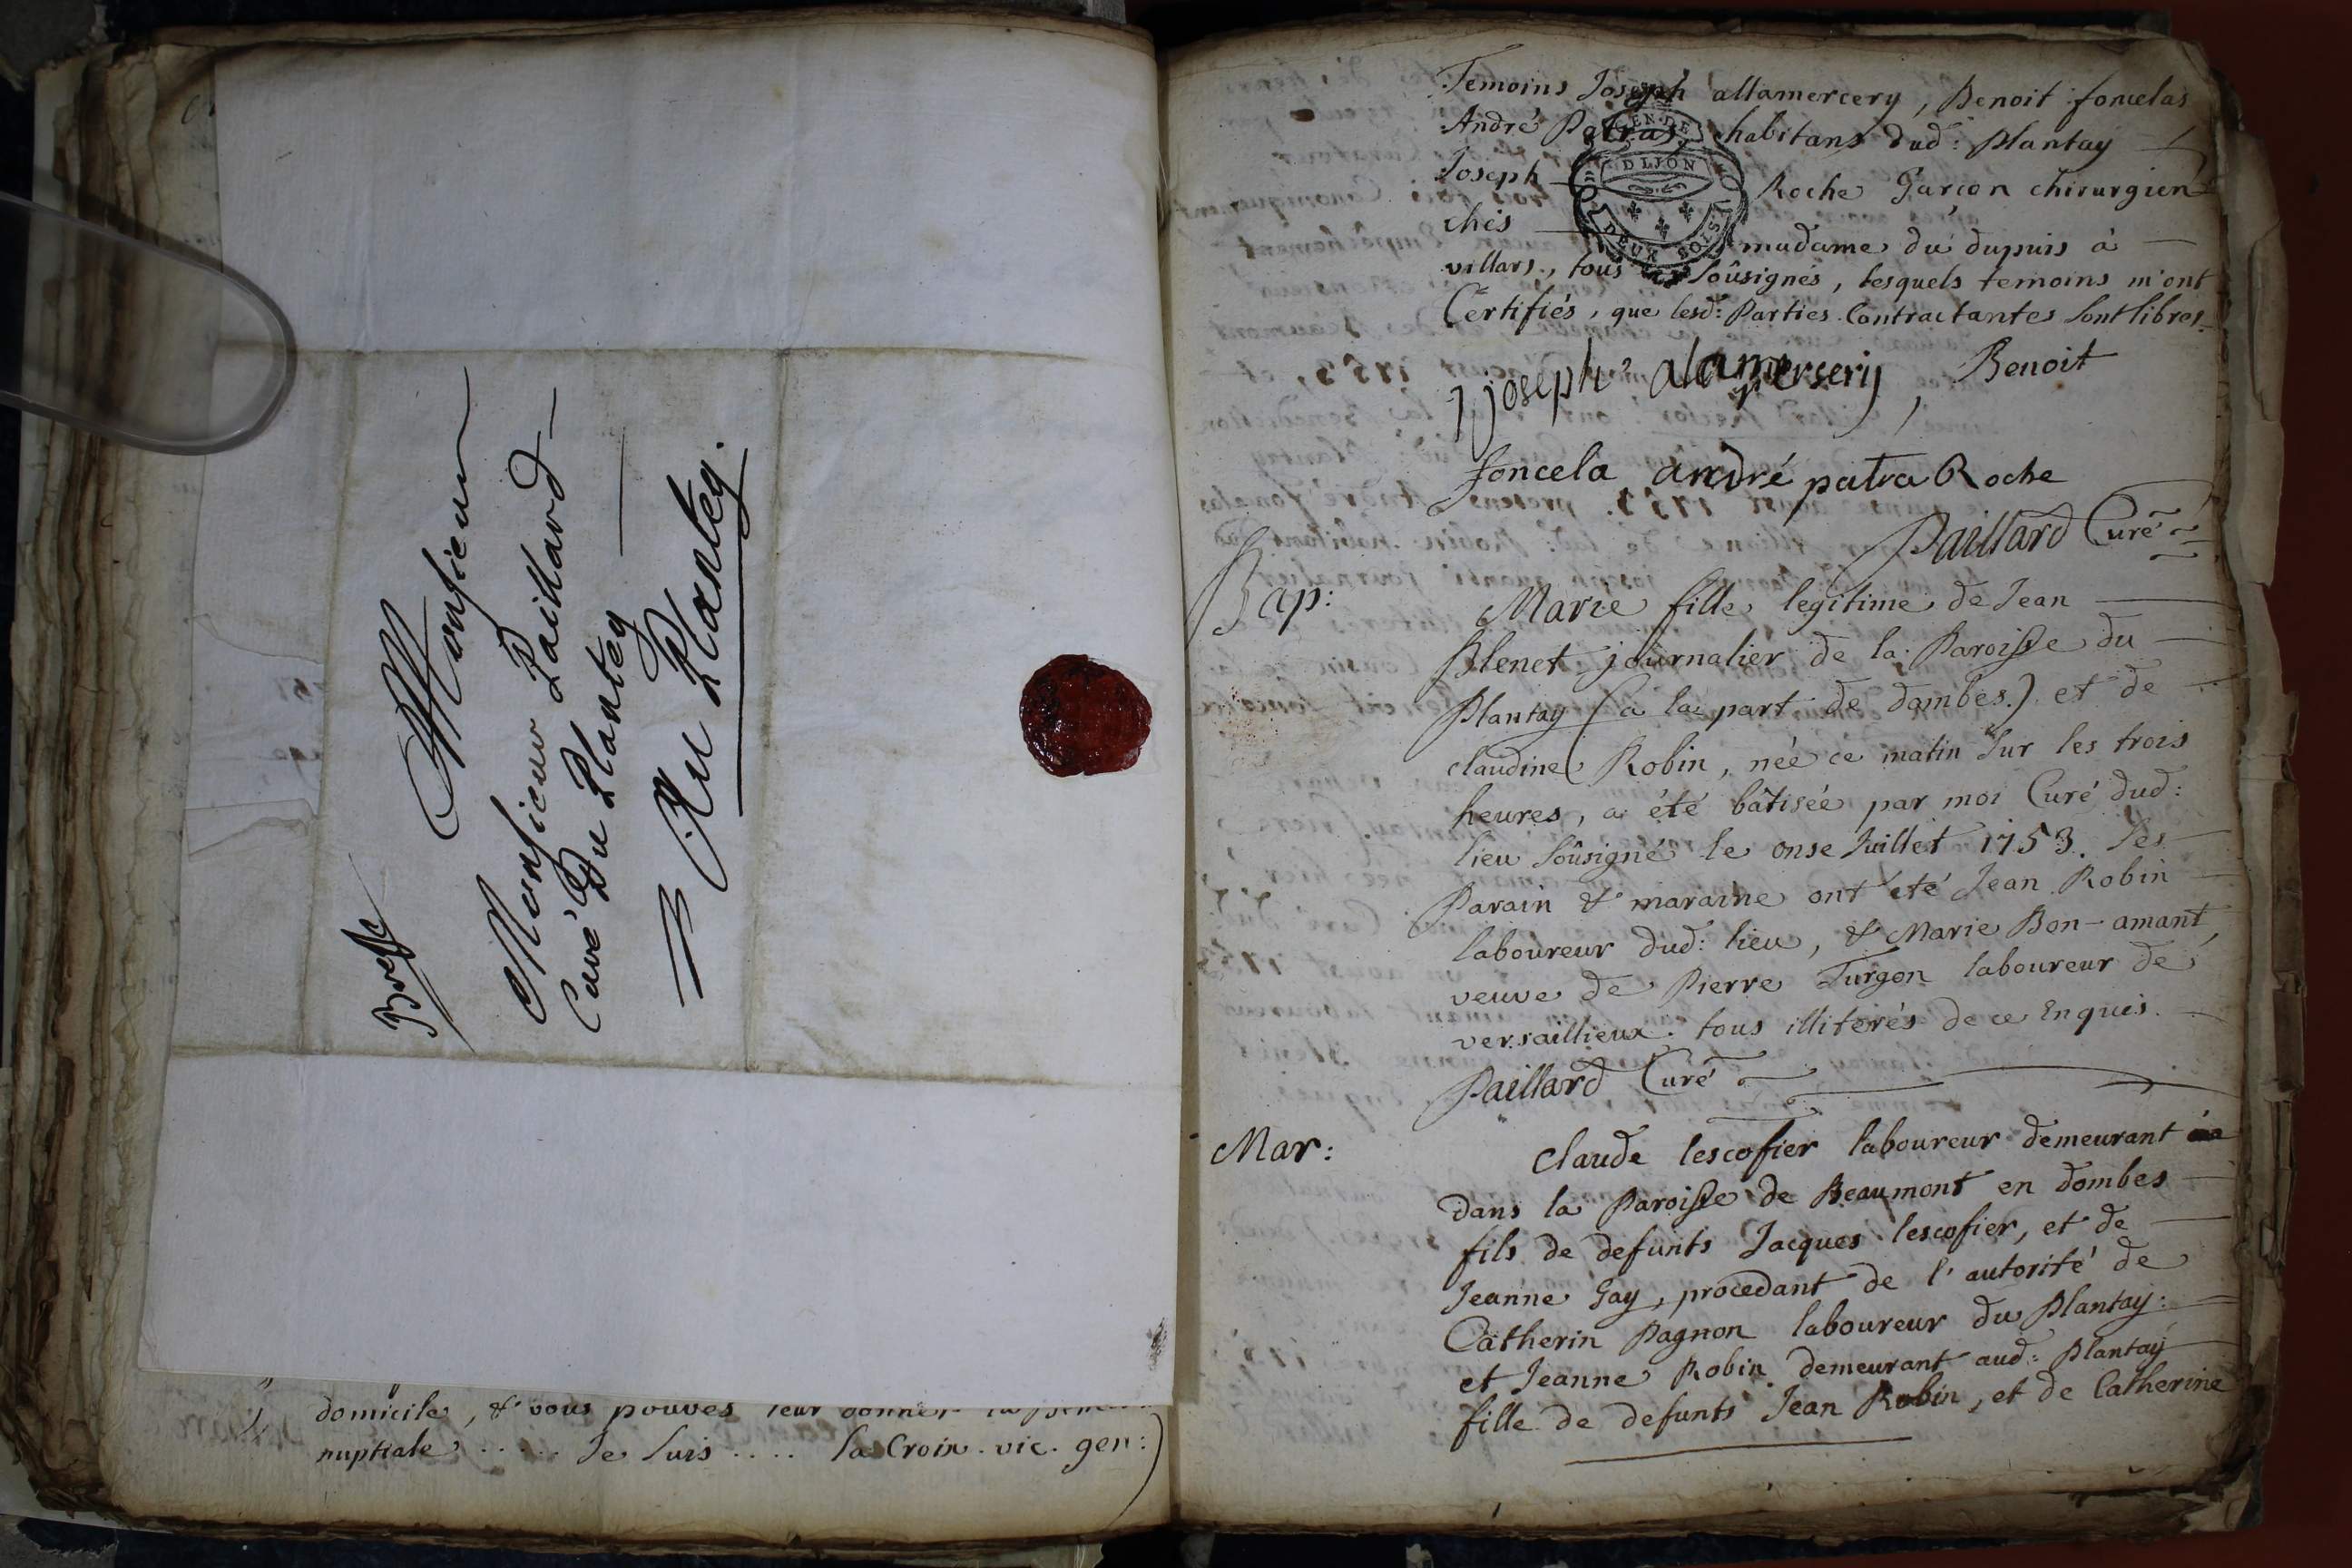 Bresse
A Monsieur
Monsieur Paillard
Curé Du Plantey
Au Plantey.
domicile, & vous pouvés leur donner la
nuptiale ..... Je suis .... la Croix. vic. gen:)
Temoins Joseph allamercery, Benoit foncelas
André Patras, habitans dud: Plantay
Joseph Roche Garcon chirurgien
chés madame du dupuis à
villars, tous soûsignés, lesquels temoins m'ont
Certifiés, que lesd: Parties Contractantes sont libres.
GEN. DE
DIJON
DEUX SOLS
joseph alamersery, Benoit
foncela andré patra Roche
Paillard Curé
Bap:
Marie fille legitime de Jean
Blenet journalier de la Paroisse du
Plantay (a la part de dombes.) et de
claudine Robin, née ce matin sur les trois
heures, a été bâtisée par moi Curé dud:
lieu soûsigné le onse Juillet 1753. Ses
Parain & maraine ont été Jean Robin
laboureur dud: lieu, & Marie Bon-amant,
veuve de Pierre Turgon laboureur de
versaillieux. tous illiterés de ce Enquis.
Paillard Curé
Mar:
Claude lescofier laboureur demeurant
dans la Paroisse de Beaumont en dombes
fils de defunts Jacques lescofier, et de
Jeanne Gay, procedant de l'autorité de
Catherin Pagnon laboureur du Plantay:
et Jeanne Robin demeurant aud: Plantay
fille de defunts Jean Robin, et de Catherine